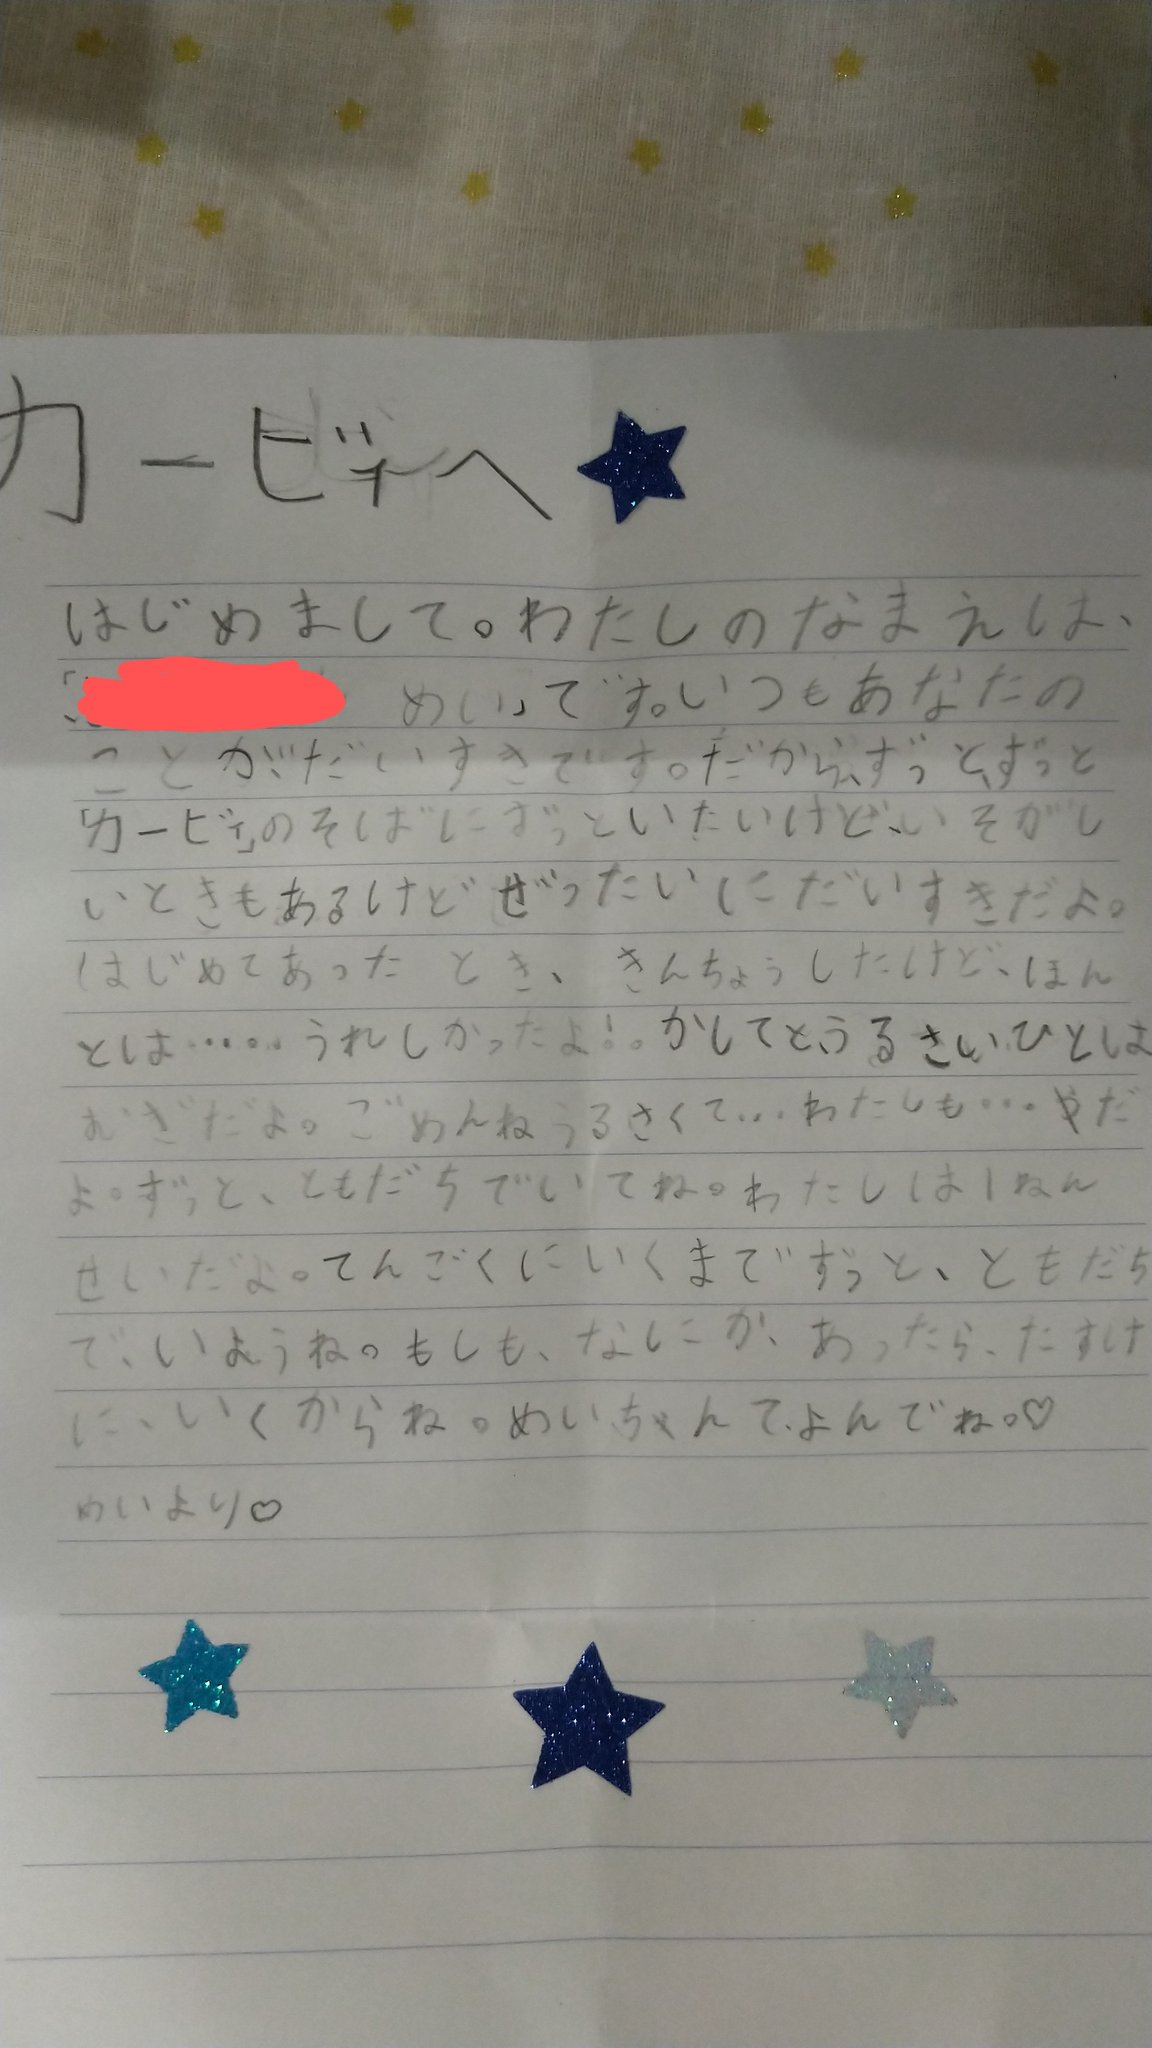 カービィへ
はじめまして。わたしのなまえは、
「 めい」です。いつもあなたの
ことがだいすきです。だから、ずっと、ずっと
「カービィ」のそばにずっといたいけど、いそがし
いときもあるけどぜったいにだいすきだよ。
はじめてあったとき、きんちょうしたけど、ほん
とは……うれしかったよ!。かしてと、うるさいひとは
むぎだよ。ごめんねうるさくて…わたしも…やだ
よ。ずっと、ともだちでいてね。わたしは1ねん
せいだよ。てんごくにいくまでずっと、ともだち
で、いようね。もしも、なにか、あったら、たすけ
に、いくからね。めいちゃんて、よんでね。♡
めいより♡